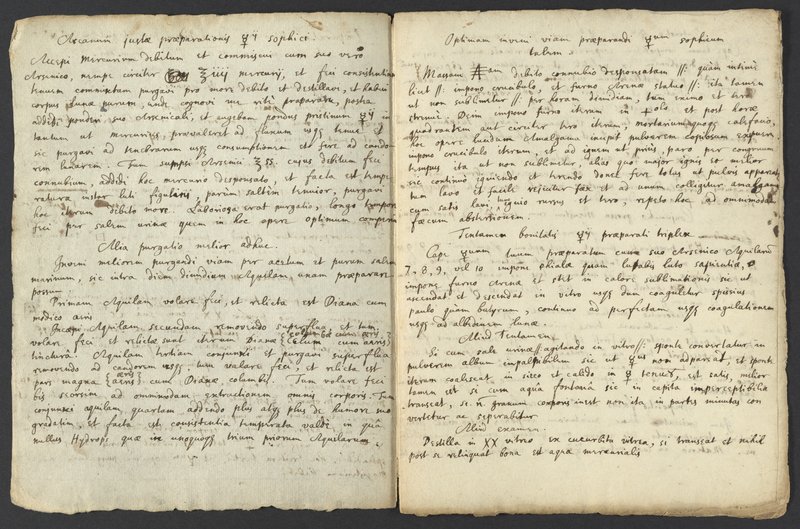 Arcanum justæ præparationis ☿ij sophici.
Accepi mercurium debitum et commiscui cum suo vero
Arsenico, nempe circiter ℥iiij mercurij, et feci consistentiam
tenuem commixtam purgavi pro more debito et destillavi, et habui
corpus Lunæ purum, unde cognovi me ritè præparasse, postea
addidi ponderi suo Arsenicali, et augebam pondus pristinum ☿ij in
tantum ut mercurius prævaleret ad fluxum usque tenuem,
sic purgavi ad tenebrarum usque consumptionem et fere ad cando-
rem lunarem. Tum sumpsi Arsenici ℥ss. cujus debitum feci
connubium, addidi hoc mercurio desponsato, et facta est tempe-
ratura instar luti figularis, parùm saltem tenuior, purgavi
hoc iterum debito more. Laboriosa erat purgatio, longo tempore
feci per salem urinæ quem in hoc opere optimum comperi
Alia purgatio melior adhuc.
Inveni meliorem purgandi viam per acetum et purum salem
marinum, sic intra diem dimidium Aquilam unam præparare
possum.
Primam Aquilam volare feci, et relicta est Diana cum
modico æris
Incepi Aquilam secundam removendo superflua et tum
volare feci et relictæ sunt iterum Dianæ columbæ cum æris
tinctura. Aquilam tertiam conjunxi et purgavi superflua
removendo ad candorem usque tum volare feci, et relicta est
pars magna æris cum Dianæ columbis. Tum volare feci
bis seorsim ad omnimodam extractionem omnis corporis. Tum
conjunxi aquilam quartam addendo plus atque plus de humore suo
gradatim, et facta est consistentia temperata valde in quâ
nullus Hydrops, quæ in unaquaque trium priorum Aquilarum.
Optimam inveni viam præparandi ☿ium sophicum
talem.
Massam debito connubio desponsatam //: quam intimè
licet :// impono crucibulo, et furno Arenæ statuo //: ita tamen
ut non sublimetur :// per horam dimidiam, tum eximo et tero
strenuè. Dein impono furno iterum in polo et post horæ
quadrantem aut circiter tero iterum, mortarium quoque calefacio,
hoc opere laudum Amalgama incipit pulverem copiosum expuere.
impono crucibulo iterum et ad ignem ut prius, paro per congruum
tempus ita ut non sublimetur, alias quo major ignis eo melior
sic continuo igniendo et terendo donec fere totus ut pulvis apparet
tum lavo et facile rejicitur fæx et ad unum colligitur amalgama
cum satis lavi ignio rursus et tero, repeto hoc ad omnimodam
fæcum abstersionem.
Tentamen bonitatis ☿ij præparati triplex.
Cape ☿ium tuum præparatum cum suo Arsenico Aquilarum
7, 8, 9, vel 10 impone phialæ quam lutabis luto sapientiæ,
impone furno Arenæ et stet in calore sublimationis sic ut
ascendat et descendat in vitro usque dum coaguletur spissius
paulo quam butyrum, continuo ad perfectam usque coagulationem
usque ad albedinem Lunæ.
Aliud Tentamen.
Si cum sale urinæ agitando in vitro :// sponte convertatur in
pulverem album impalpabilem sic ut ☿ius non adpareat, et sponte
iterum coalescat in sicco et calido in ☿ tenuem, est satis, melior
tamen est si cum aquâ fontanâ sic in capita imperceptibilia
transeat, si n. granum corporis inest non ita in partes minutas con-
vertitur ac separabitur
Aliud examen.
Destilla in XX vitreo ex cucurbita vitrea, si transeat et nihil
post se relinquat bona est aqua mercurialis